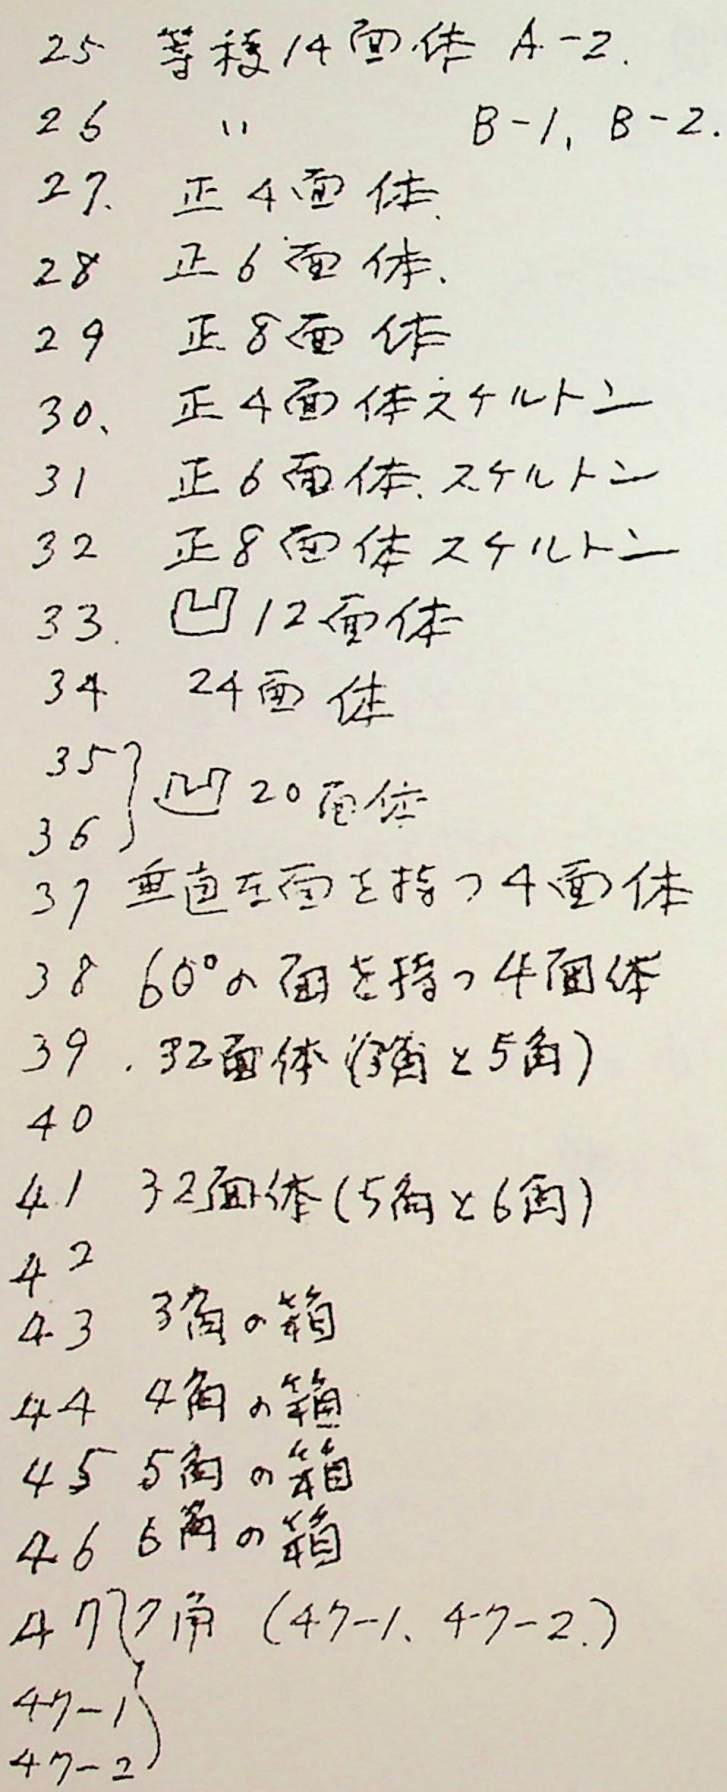 25 等積14面体 A-2.
26 〃 B-1, B-2.
27. 正4面体.
28 正6面体.
29 正8面体
30、正4面体スケルトン
31 正6面体.スケルトン
32 正8面体スケルトン
33. 凹12面体
34 24面体
35
凹20面体
36
37 垂直な面を持つ4面体
38 60°の面を持つ4面体
39. 32面体(3角と5角)
40
41 32面体(5角と6角)
42
43 3角の箱
44 4角の箱
45 5角の箱
46 6角の箱
47 7角 (47-1、47-2.)
47-1
47-2